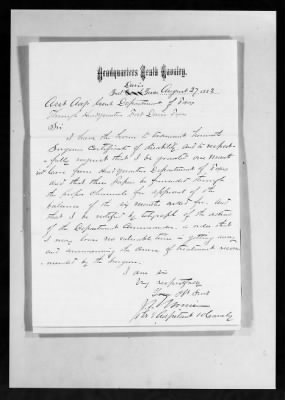 Headquarters Tenth Cavalry,
Davis
Fort Texas August 27, 188
Department of Texas
Through Headquarters Fort Davis Texas
Sir
I have the honor to transmit herewith
Surgeons Certificate of disability, and to respect-
fully request that I be granted one month
leave from Headquarters Department of Texas
and that these Papers be forwarded through
the proper channels for approval of the
balance of the six months asked for. And
that I be notified by telegraph of the action
of the Department Commander, in order that
I may loose no valuable time in getting away
and commencing the course of treatment recom-
mended by the Surgeon.
I am sir
Very respectfully
Your Obt Servt
Adjutant 10 Cavalry